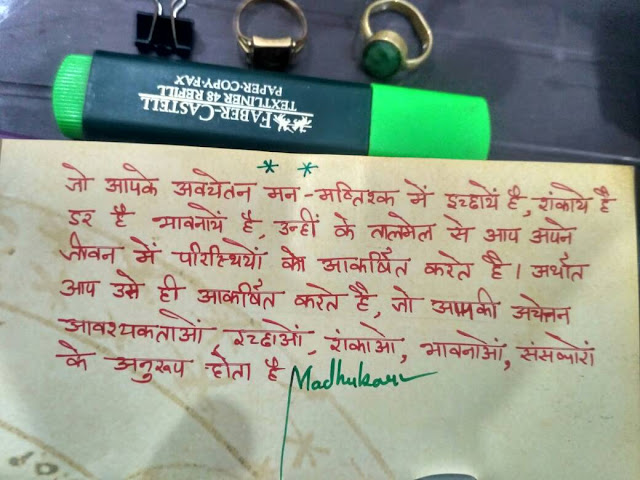 FABER-CASTELL
TEXTLINER 48 REFILL
PAPER·COPY·FAX
* *
जो आपके अवचेतन मन - मस्तिश्क में इच्छायें है, शंकाये है
डर है भावनायें है, उन्हीं के तालमेल से आप अपने
जीवन में परिस्थियों को आकर्षित करते है। अर्थात
आप उसे ही आकर्षित करते है, जो आपकी अचेतन
आवश्यकताओं, इच्छाओं, शंकाओ, भावनाओं, संसकारों
के अनुरूप होता है Madhukar